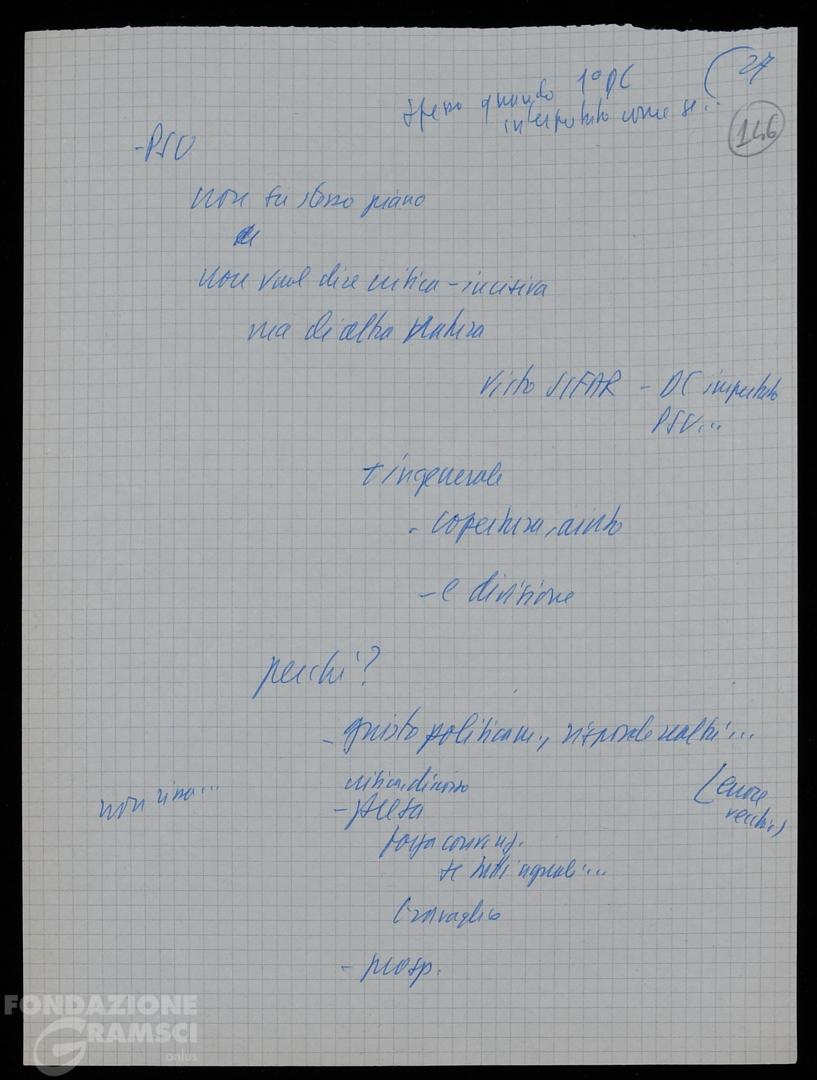 (27
spesso quando 1° DC
interpretato come se...
146
- PSU
non su stesso piano
non vuol dire critica - incisiva
ma di altra natura
visto SIFAR - DC imputato
PSU...
+ in generale
- copertura, aiuto
- e divisione
perché?
- giusto politicam., risponde realtà...
critica, discorso
non rissa...
- presa
(errore
vecchio)
forza conving.
se tutti uguali...
travaglio
- prosp.
FONDAZIONE
GRAMSCI
onlus